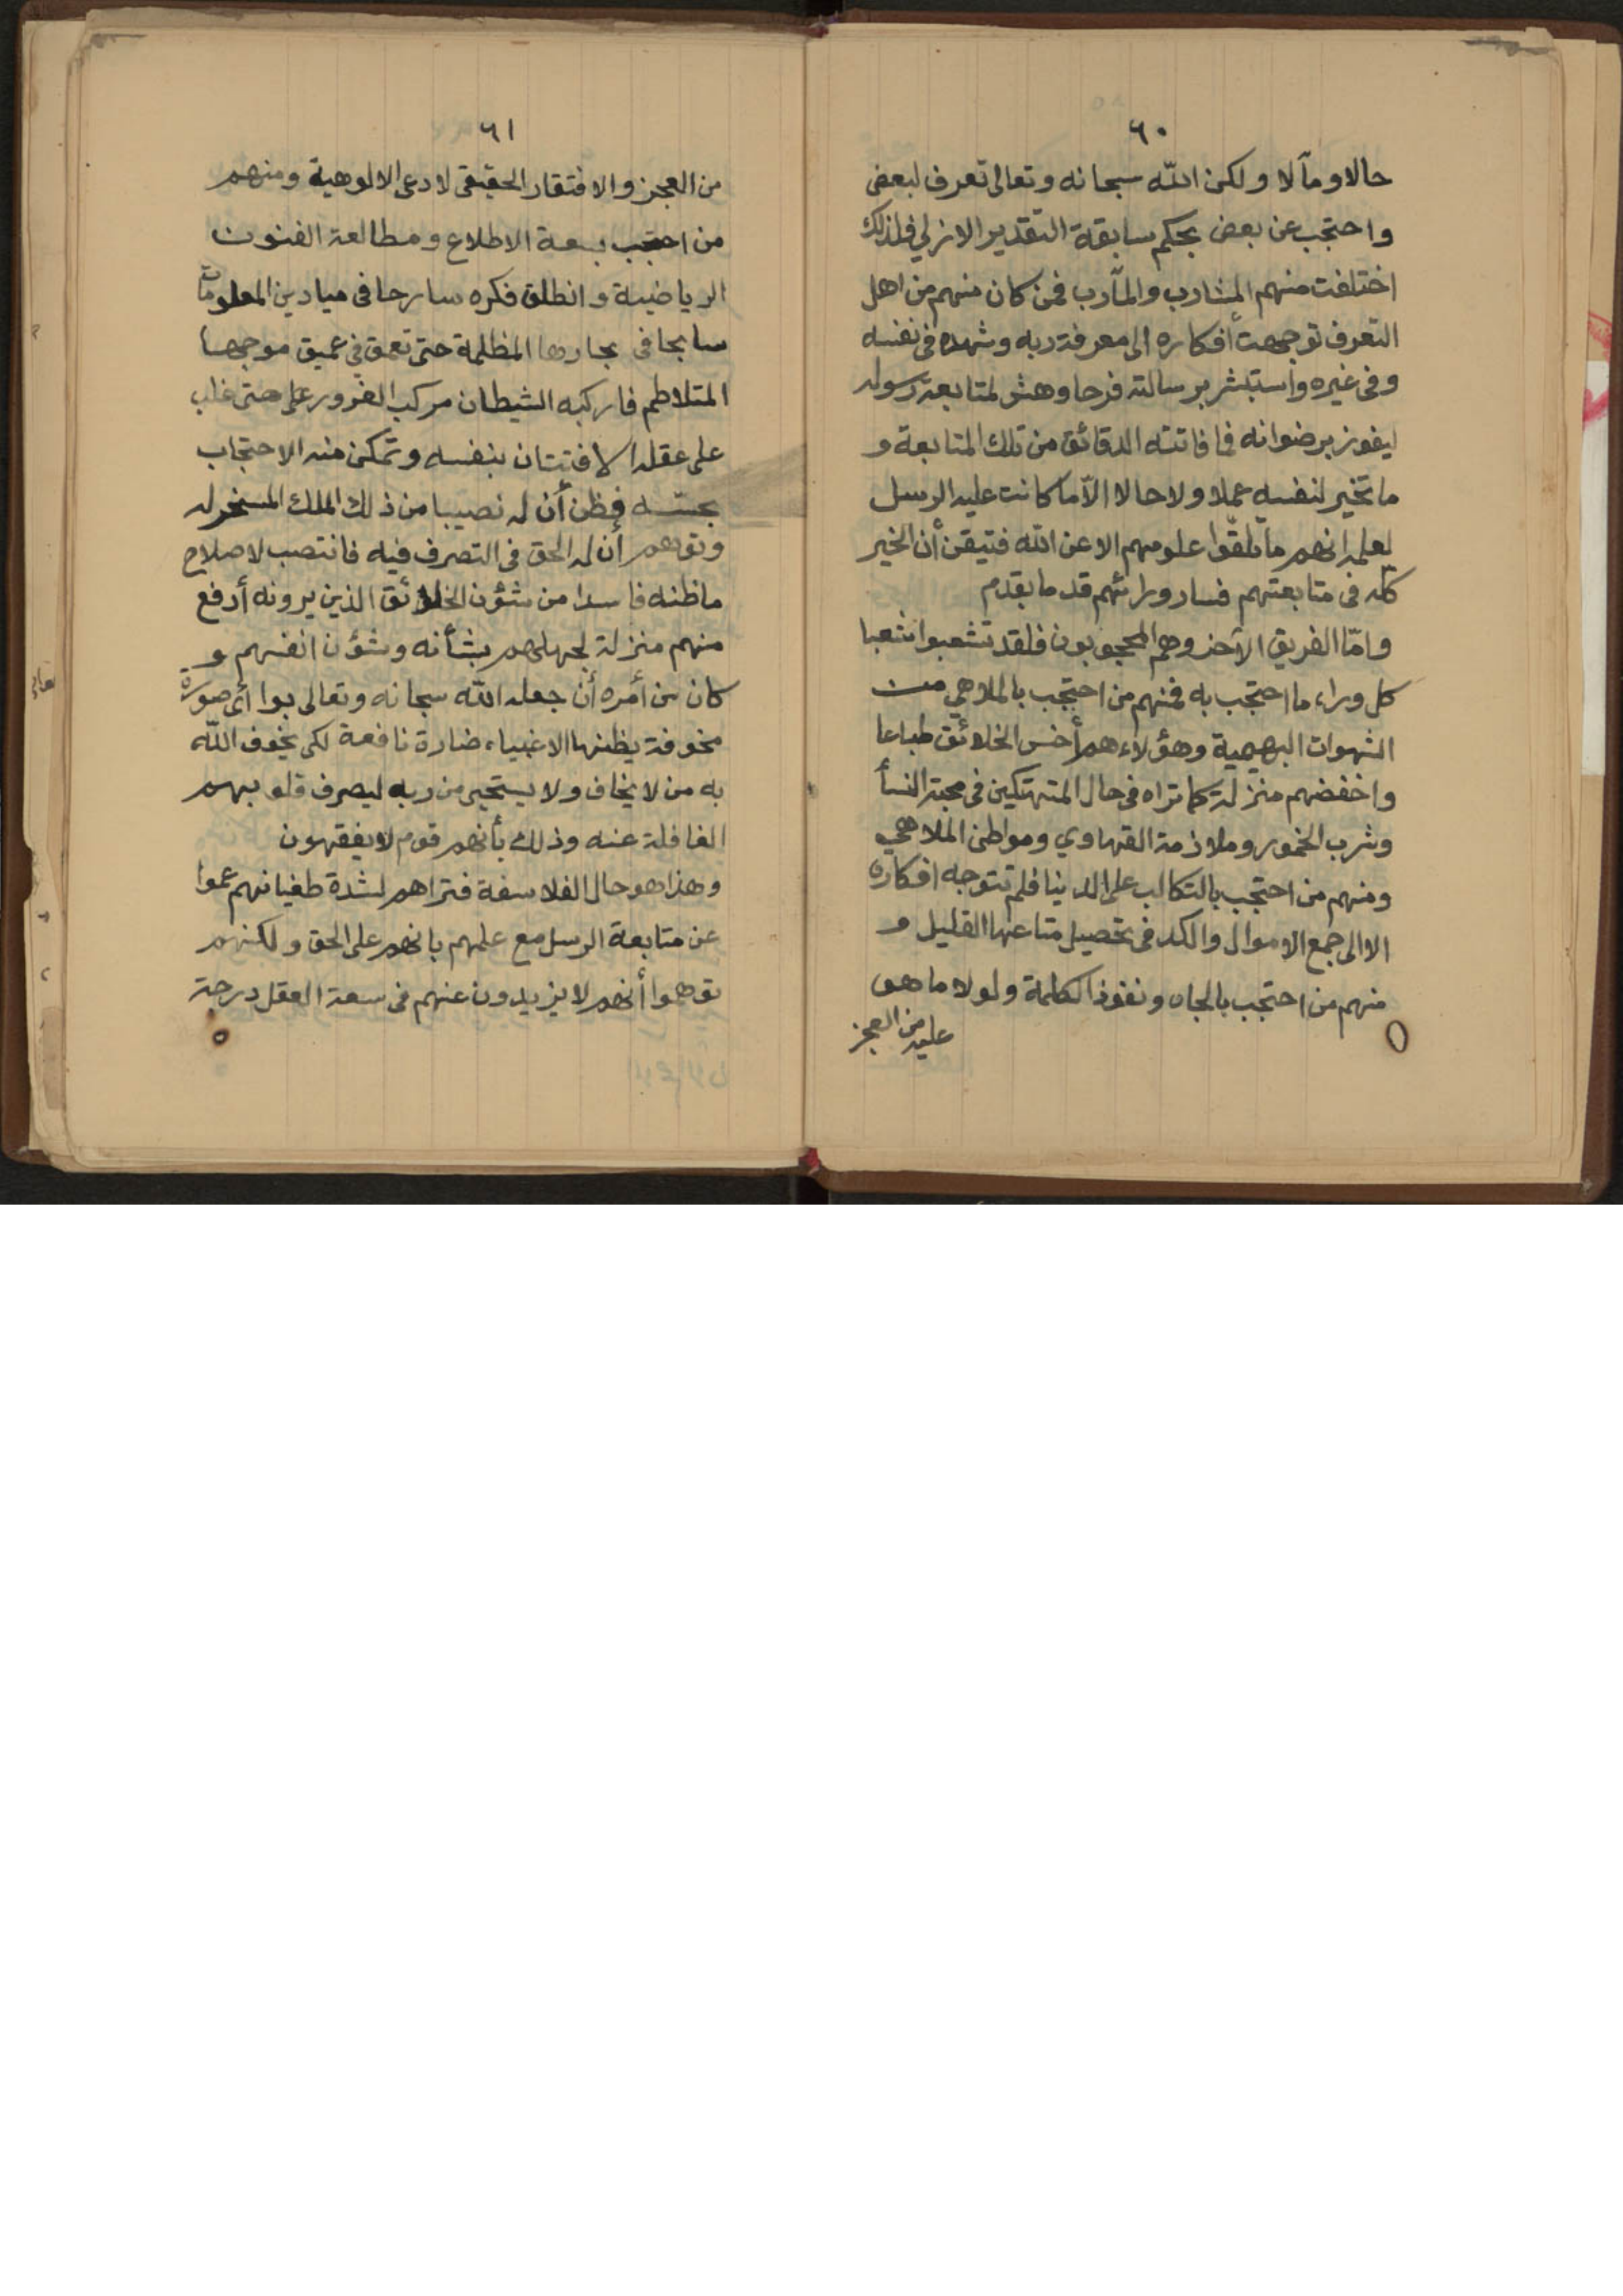 ٦٠
حالا ومآلا ولكن الله سبحانه وتعالى تعرف لبعض
واحتجب عن بعض بحكم سابقة التقدير الازلي فلذلك
اختلفت منهم المشارب والمآرب فمن كان منهم من اهل
التعرف توجهت أفكاره الى معرفة ربه وشهده في نفسه
وفى غيره وأستبشر برسالته فرحا وهش لمتابعة رسوله
ليفوز برضوانه فما فاتته الدقائق من تلك المتابعة و
ما تخير لنفسه عملا ولا حالا الّا ما كانت عليه الرسل
لعلمه انهم ما تلقّوا علومهم الا عن الله فتيقن أن الخير
كله فى متابعتهم فسار ورائهم قدما بقدم
وامّا الفريق الآخر وهم المحجوبون فلقد تشعبوا شعبا
كل وراء ما احتجب به فمنهم من احتجب بالملاهي من
الشهوات البهيمية وهؤلاء هم أخس الخلائق طباعا
واخفضهم منزلة كما تراه في حال المتهتكين في محبة النسأ
وشرب الخمور وملازمة القهاوي ومواطن الملاهي
ومنهم من احتجب بالتكالب على الدينا فلم تتوجه افكاره
الا الى جمع الاموال والكد فى تحصيل متاعها القليل و
منهم من احتجب بالجاه ونفوذ الكلمة ولولا ما هو
عليه من العجز
٦١
من العجز والافتقار الحقيقى لادعى الالوهية ومنهم
من احتجب بسعة الاطلاع ومطالعة الفنون
الرياضية وانطلق فكره سارحا فى ميادين المعلومات
سابحا فى بحارها المظلمة حتى تعمق في عميق موجها
المتلاطم فاركبه الشيطان مركب الغرور على حتى غلب
على عقله الافتتان بنفسه وتمكن منه الاحتجاب
بحسّه فظن أن له نصيبا من ذلك الملك المسخر له
وتوهم أن له الحق فى التصرف فيه فانتصب لاصلاح
ما ظنه فاسدا من شؤن الخلائق الذين يرونه أرفع
منهم منزلة لجهلهم بشأنه وشؤن انفسهم و
كان من أمره أن جعله الله سبحانه وتعالى بوا أى صورة
مخوفة يظنها الاغبياء ضارة نافعة لكى يخوف الله
به من لا يخاف ولا يستجير من ربه ليصرف قلوبهم
الغافلة عنه وذلك بأنهم قوم لا يفقهون
وهذا هو حال الفلاسفة فتراهم لشدة طغيانهم عموا
عن متابعة الرسل مع علمهم بانهم على الحق ولكنهم
توهموا أنهم لا يزيدون عنهم فى سعة العقل درجة